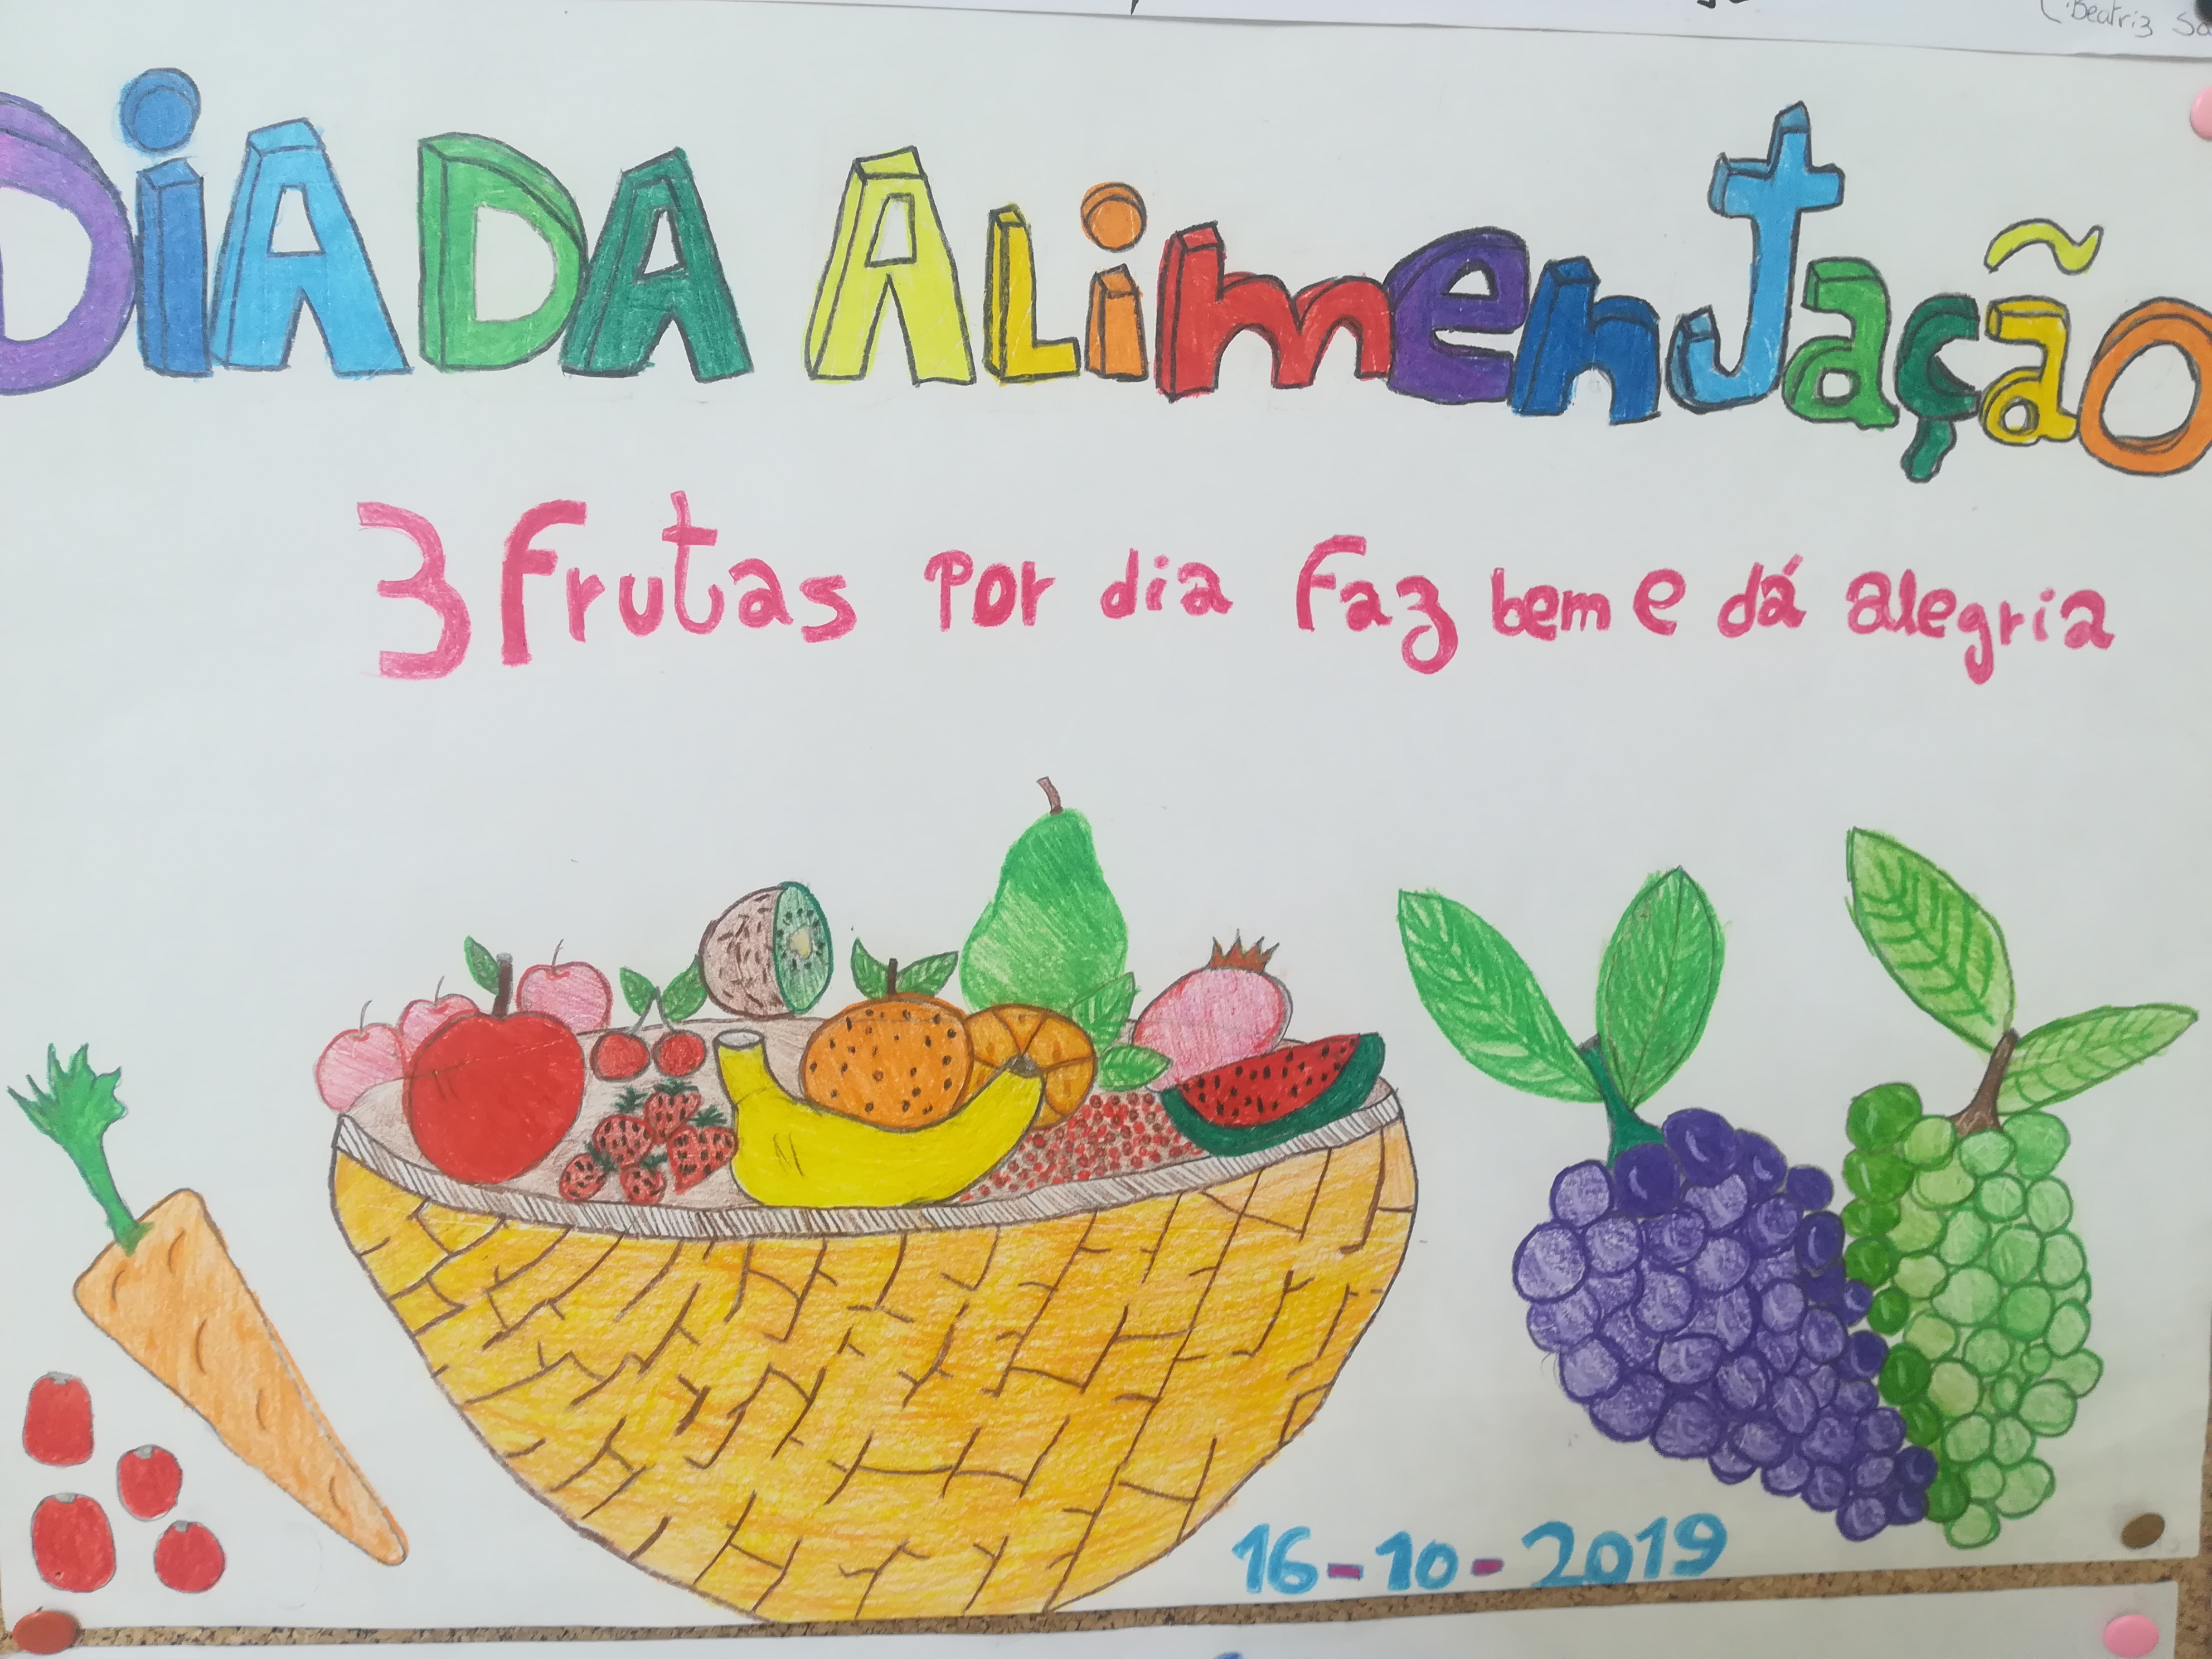 Beatriz
DiA DA ALimentação
3 frutas por dia faz bem e dá alegria
16-10-2019